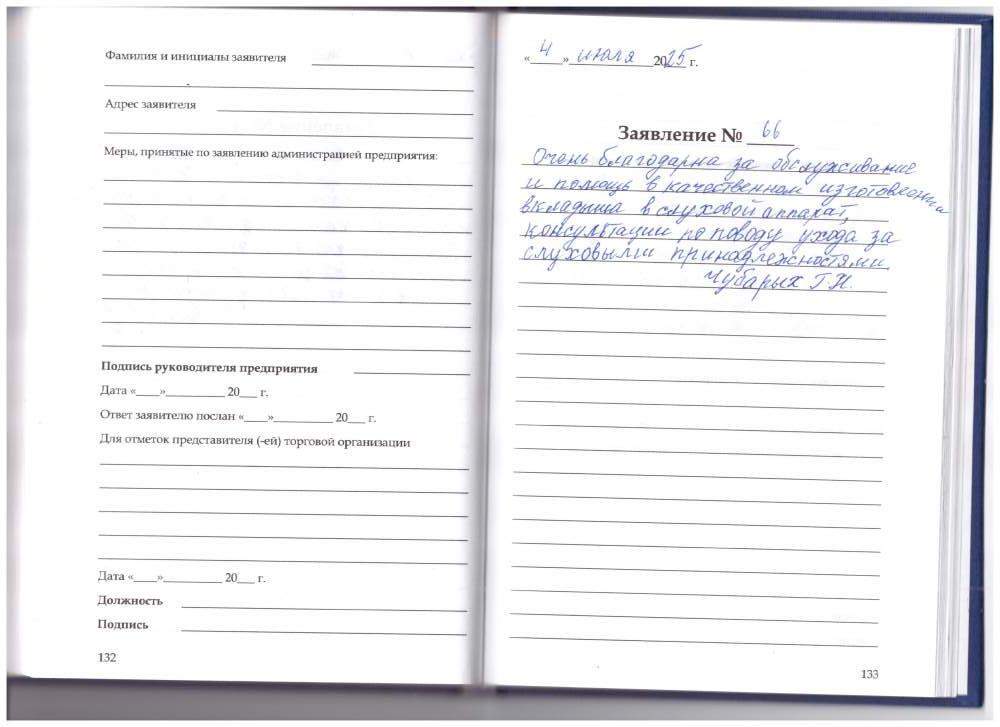 Фамилия и инициалы заявителя
Адрес заявителя
Меры, принятые по заявлению администрацией предприятия:
Подпись руководителя предприятия
Дата «____»__________ 20___ г.
Ответ заявителю послан «____»__________ 20___ г.
Для отметок представителя (-ей) торговой организации
Дата «____»__________ 20___ г.
Должность
Подпись
132
«4» июля 2025 г.
Заявление № 66
Очень благодарна за обслуживание
и помощь в качественном изготовлении
вкладыша в слуховой аппарат,
консультации по поводу ухода за
слуховыми принадлежностями.
Чубарых Г.Н.
133